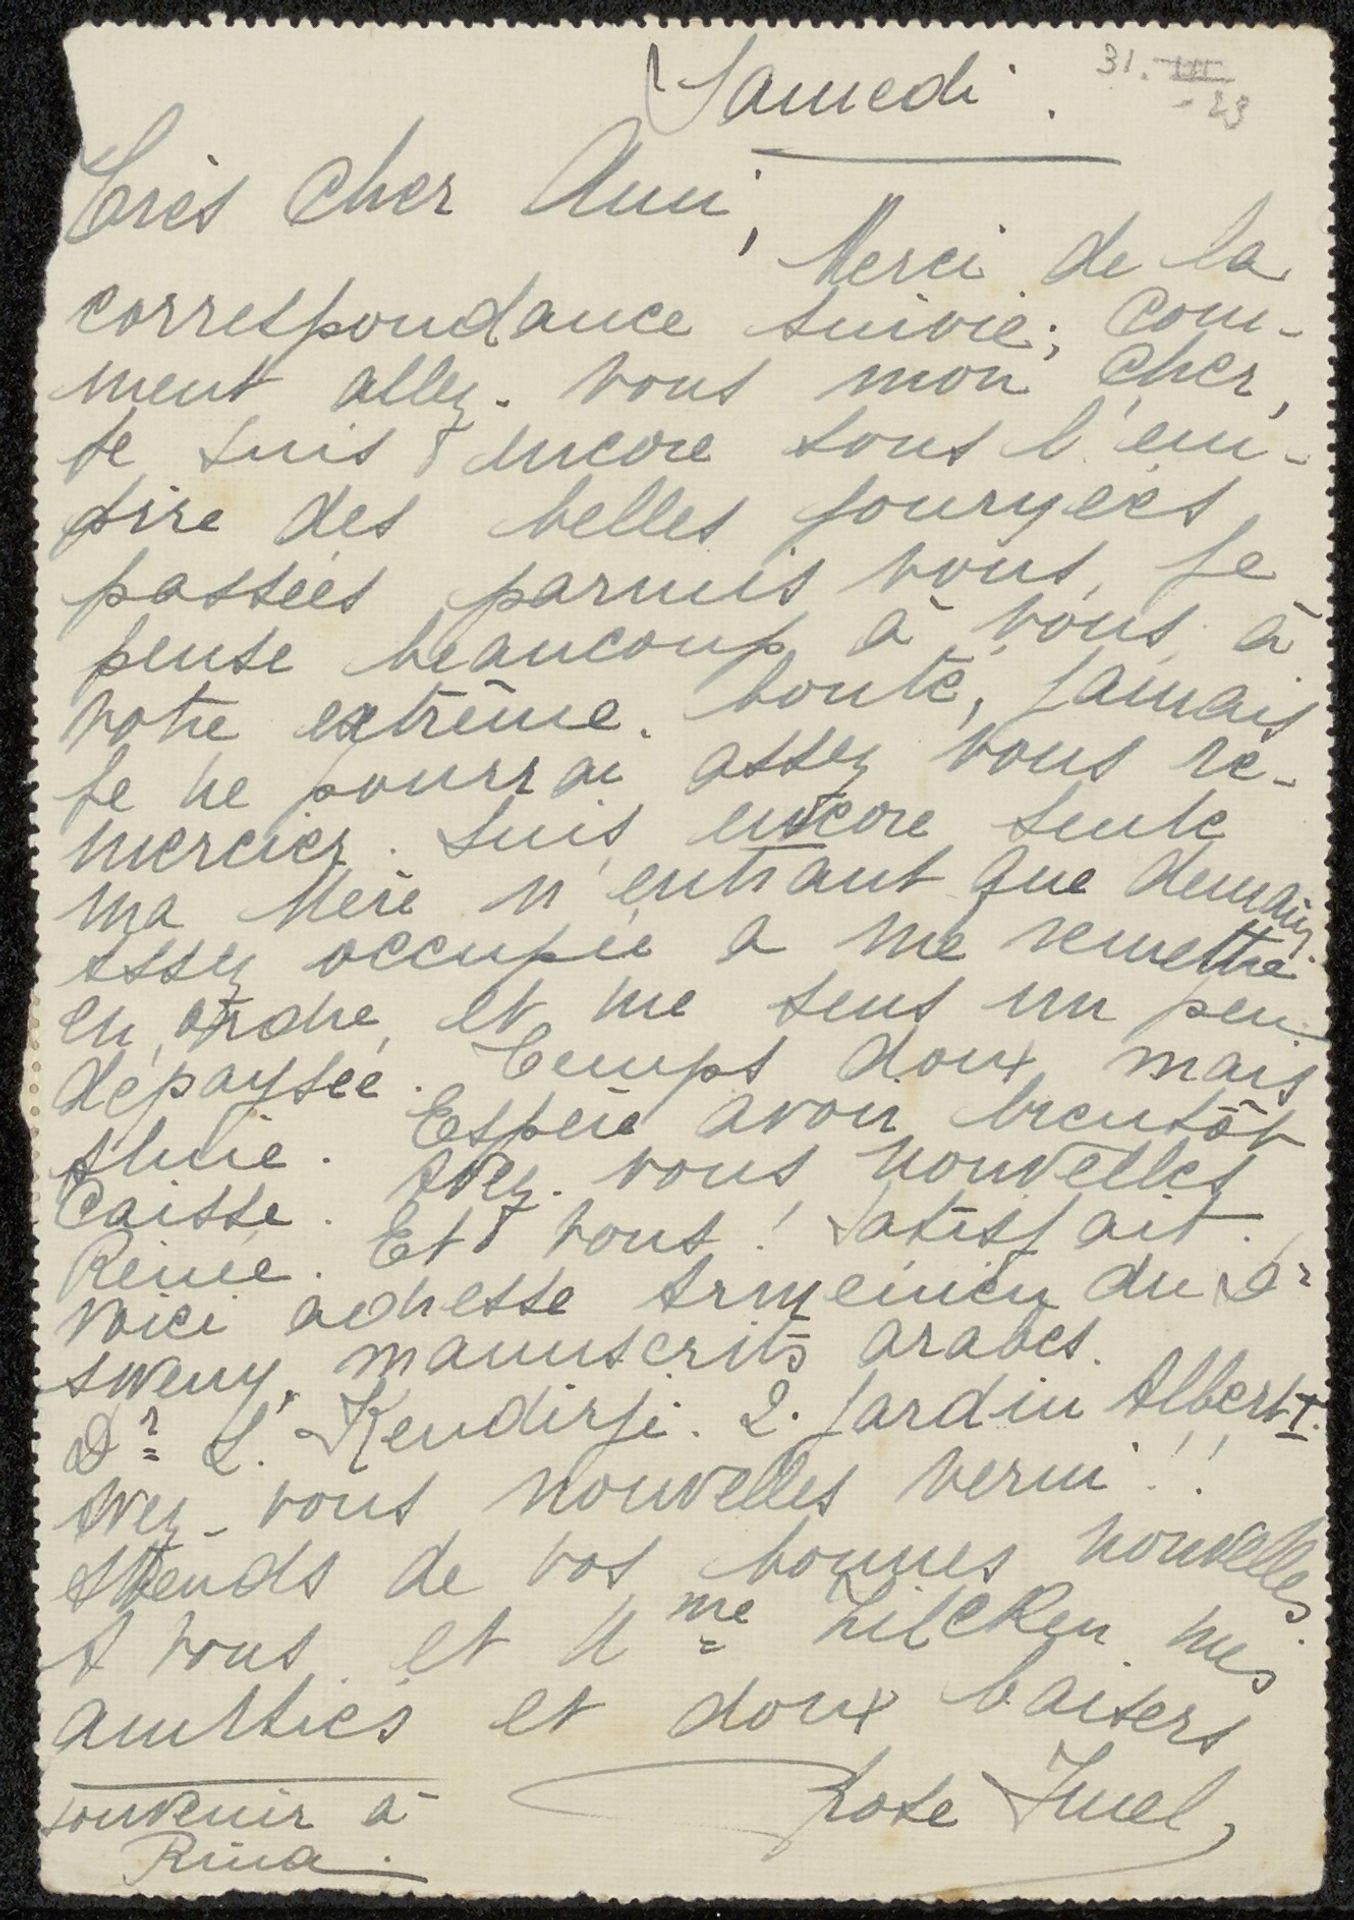 Samedi.
31. III
- 23
Très Cher Ami,
Merci de la
correspondance suivie; Com-
ment allez-vous mon cher,
je suis encore sous l'em-
pire des belles journées
passées parmis vous, je
pense beaucoup à vous, à
votre extrême bonté, jamais
je ne pourrai assez vous re-
mercier. Suis encore seule
ma Mère n'entrant que demain
assez occupée a me remettre
en ordre, et me sens un peu
dépaysée. Temps doux mais
pluie. Espère avoir bientôt
Caisse. Avez-vous nouvelles
Renée. Et vous! Satisfait.
Voici adresse Armenien du Dr
manuscrits arabes.
Dr L. Kendirji. 2. Jardin Albert I.
Avez-vous nouvelles !!
Attends de vos bonnes nouvelles.
A vous et Mme Zilcken mes
amitiés et doux baisers
Rose Imel,
souvenir à
Rina.